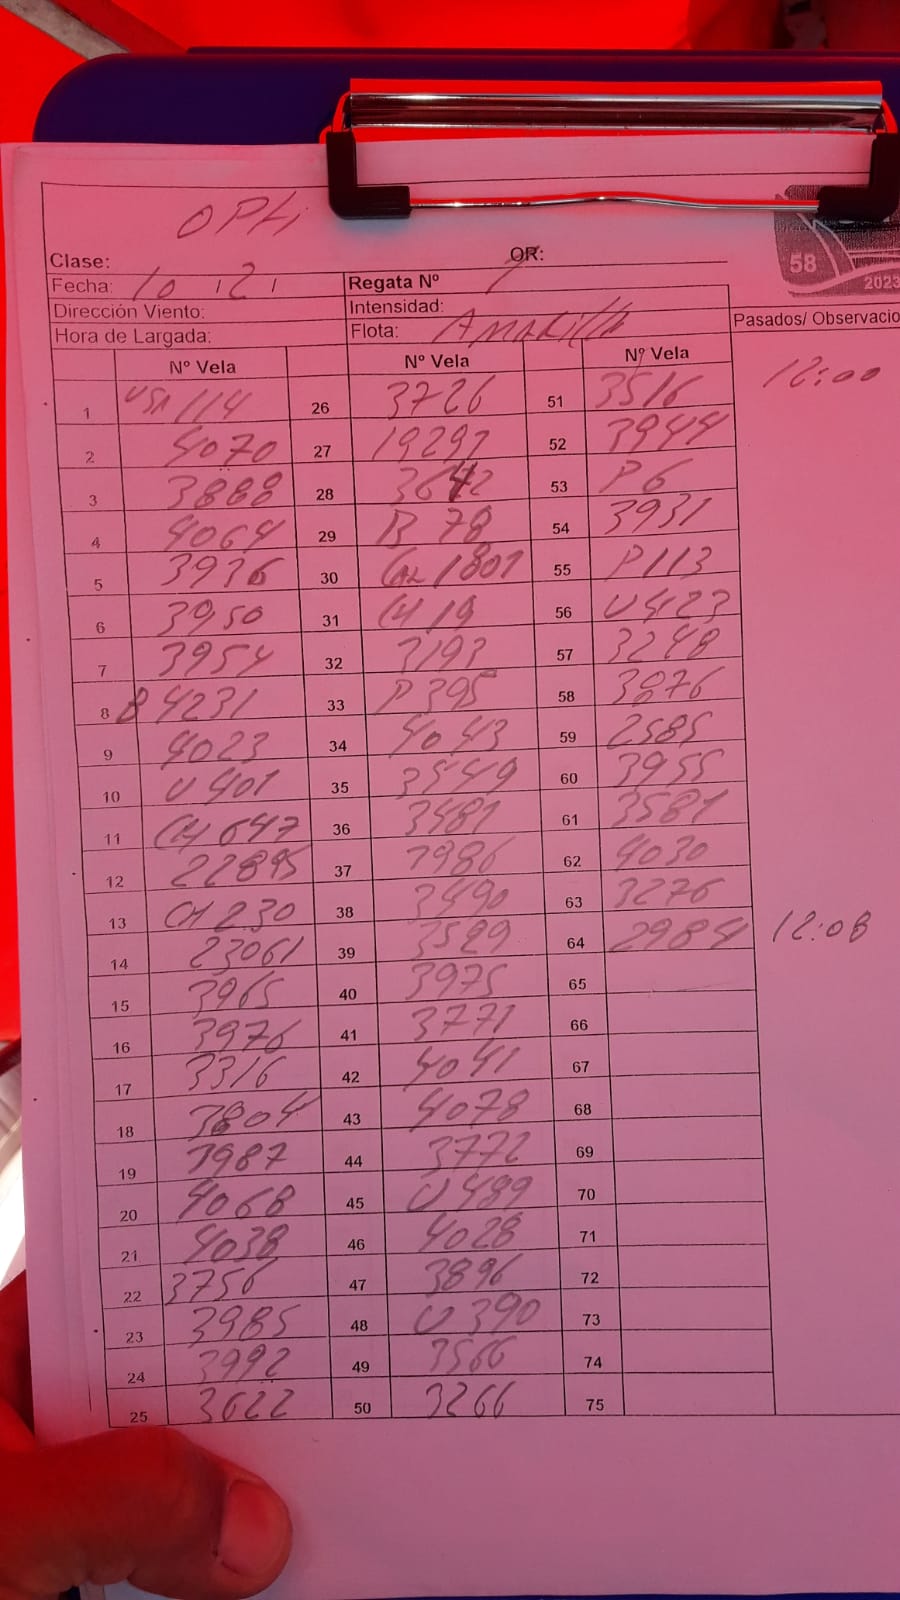 OPti
Clase: OR:
58
2023
Fecha: 10 12 Regata Nº 7
Dirección Viento: Intensidad:
Hora de Largada: Flota: Amarilla
Pasados/ Observacio
Nº Vela Nº Vela Nº Vela
12:00
1 USA 114 26 3726 51 3516
2 4070 27 19297 52 3944
3 3888 28 3642 53 P 6
4 4064 29 B 78 54 3931
5 3936 30 1807 55 P 113
6 3950 31 CH 19 56 U 423
7 3954 32 3193 57 3248
8 B 4231 33 P 395 58 3876
9 4023 34 4043 59 2585
10 U 401 35 3549 60 3955
11 CH 647 36 3481 61 3581
12 22895 37 3986 62 4030
13 CH 230 38 3490 63 3276
14 23061 39 3529 64 2984 12:08
15 3965 40 3975 65
16 3976 41 3771 66
17 3316 42 4041 67
18 3804 43 4078 68
19 3987 44 3772 69
20 4068 45 U 489 70
21 4038 46 4028 71
22 3756 47 3896 72
23 3985 48 U 390 73
24 3992 49 3566 74
25 3622 50 3266 75